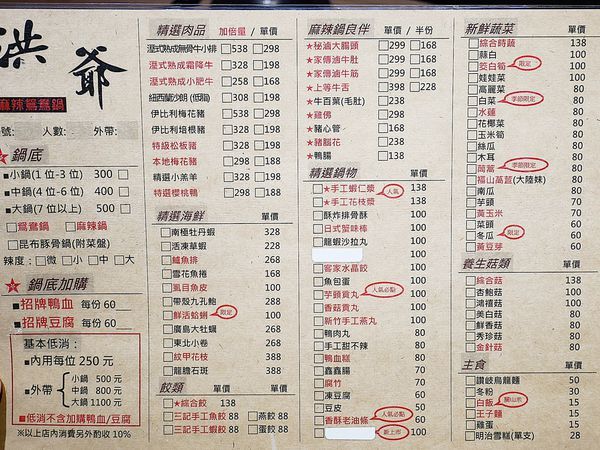 洪爺
麻辣鴛鴦鍋
號: 人數: 外帶:
鍋底
小鍋(1位-3位) 300
中鍋(4位-6位) 400
大鍋(7位以上) 500
鴛鴦鍋 麻辣鍋
昆布豚骨鍋(附菜盤)
辣度: 微 小 中 大
鍋底加購
招牌鴨血 每份 60
招牌豆腐 每份 60
基本低消:
內用每位 250 元
外帶
小鍋 500 元
中鍋 800 元
大鍋1100 元
低消不含加購鴨血/豆腐
※以上店內消費另外酌收 10%
精選肉品 加倍量 / 單價
溼式熟成無骨牛小排 538 298
溼式熟成霜降牛 388 208
溼式熟成小肥牛 258 168
紐西蘭沙朗(低脂) 308 198
伊比利梅花豬 538 298
伊比利培根豬 308 198
特級松板豬 348 188
本地梅花豬 288 168
精選小羔羊 348 198
特選櫻桃鴨 298 188
精選海鮮 單價
南極牡丹蝦 328
活凍草蝦 228
鱸魚排 268
雪花魚捲 168
虱目魚皮 100
帶殼九孔鮑 288
鮮活蛤蜊 限定 100
廣島大牡蠣 268
東北小卷 268
紋甲花枝 388
龍膽石斑 388
餃類 單價 單價
★綜合餃 138
三記手工魚餃 88 燕餃 88
三記手工蝦餃 88 蛋餃 88
麻辣鍋良伴 單價 / 半份
★秘滷大腸頭 299 168
★家傳滷牛肚 299 168
★家傳滷牛筋 288 168
★上等牛舌 398 228
★牛百葉(毛肚) 238
★雞佛 268
★豬心管 168
★豬腦花 238
★鴨腸 168
精選鍋物 單價
★手工蝦仁漿 人氣 138
★手工花枝漿 138
酥炸排骨酥 100
日式蟹味棒 100
龍蝦沙拉丸 100
100
客家水晶餃 80
魚包蛋 80
芋頭貢丸 人氣必點 80
香菇貢丸 80
新竹手工燕丸 80
鴨肉丸 80
手工甜不辣 80
鴨血糕 80
鑫鑫腸 80
腐竹 80
凍豆腐 80
豆皮 50
香酥老油條 人氣必點 60
新上市 100
新鮮蔬菜 單價
綜合時蔬 138
縣白 100
茭白筍 限定 100
娃娃菜 100
高麗菜 80
白菜 季節限定 80
水蓮 80
花椰菜 80
玉米筍 80
絲瓜 80
木耳 80
茼蒿 季節限定 80
福山萵苣(大陸妹) 80
南瓜 80
芋頭 70
黃玉米 70
菜頭 60
冬瓜 限定 60
黃豆芽 60
養生菇類 單價
綜合菇 138
杏鮑菇 80
鴻禧菇 80
美白菇 80
鮮香菇 80
秀珍菇 80
金針菇 80
主食 單價
讚岐烏龍麵 50
冬粉 30
白飯 關山米 15
王子麵 15
雞蛋 15
明治雪糕(單支) 28